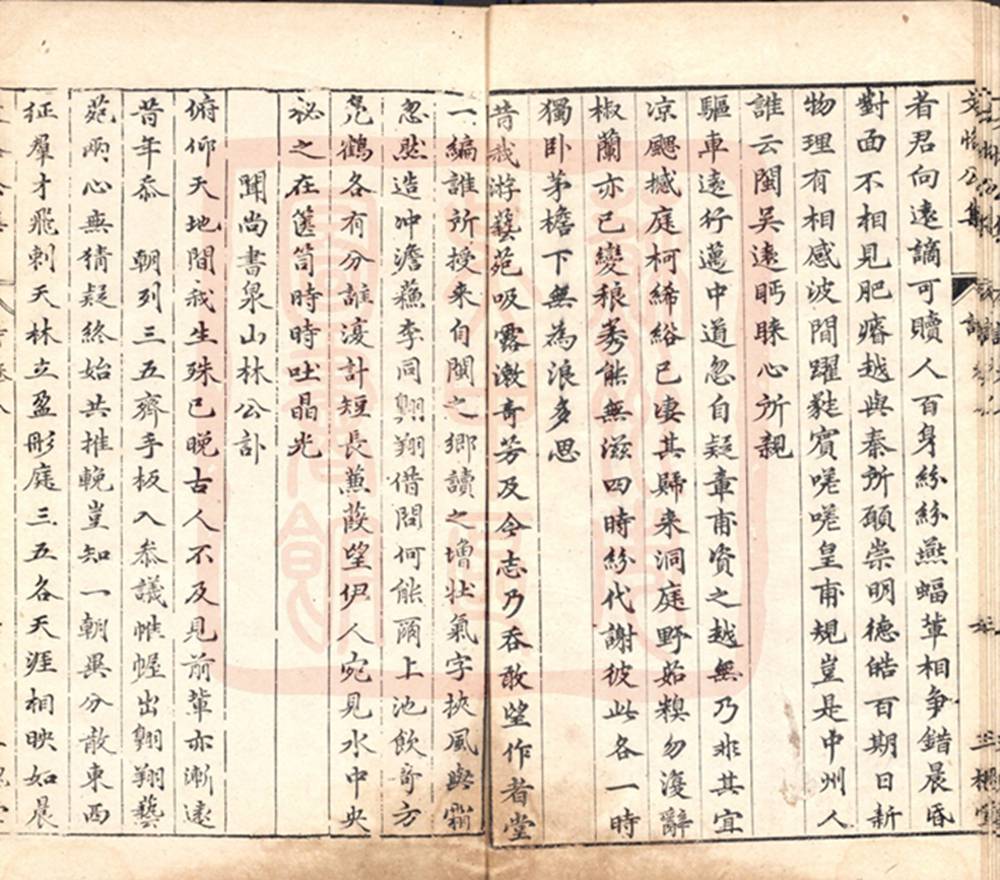 文恪公集
者君向遠謫可贖人百身紛紛燕蝠輩相爭錯晨昏
對面不相見肥瘠越與秦所願崇明德皓百期日新
物理有相感波間躍蕤賓嗟嗟皇甫規豈是中州人
誰云閩吳遠眄睞心所親
驅車遠行邁中道忽自疑章甫資之越無乃非其宜
凉颸撼庭柯絺綌已凄其歸来洞庭野茹糗勿復辭
椒蘭亦已變稂莠能無滋四時紛代謝彼此各一時
獨卧茅檐下無為浪多思
昔我游藝苑吸露漱奇芳及今志乃吞敢望作者堂
一編誰所授来自閩之鄉讀之增壯氣字挾風與霜
忽然造冲澹蘓李同翱翔借問何能爾上池飲竒方
凫鶴各有分誰復計短長蒹葭望伊人宛見水中央
祕之在篋笥時時吐晶光
聞尚書泉山林公訃
俯仰天地間我生殊已晚古人不及見前輩亦漸遠
昔年忝 朝列三五齊手板入忝議帷幄出翱翔藝
苑兩心無猜疑終始共推輓豈知一朝異分散東西
征羣才飛刺天林立盈彤庭三五各天涯相映如晨